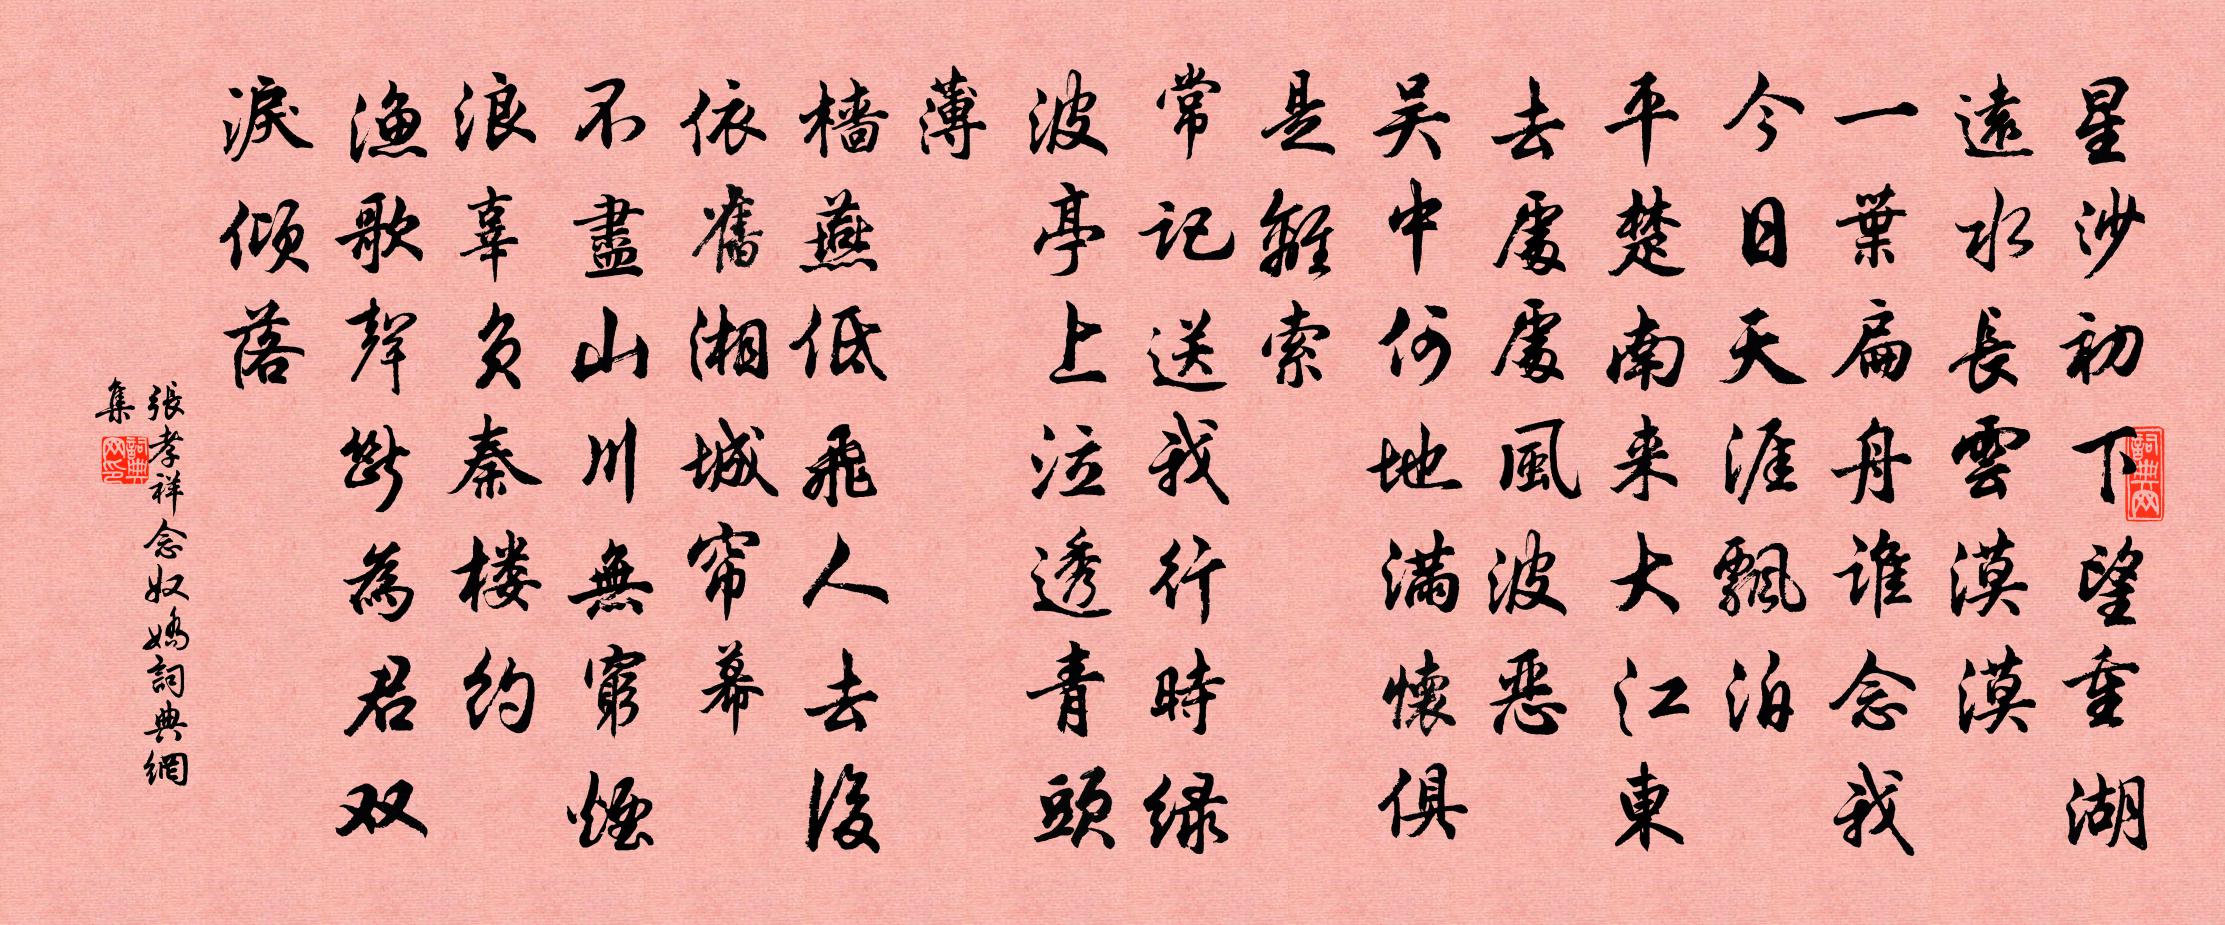 星沙初下望重湖
遠水長雲漠漠
一葉扁舟誰念我
今日天涯飄泊
平楚南来大江東
去處處風波惡
吴中何地滿懷俱
是離索
常記送我行時緑
波亭上泣透青頭
薄
檣燕低飛人去後
依舊湘城帘幕
不盡山川無窮煙
浪辜負秦楼約
漁歌聲斷為君双
淚傾落
張孝祥念奴嬌詞典網
集
詞典网
詞典网印